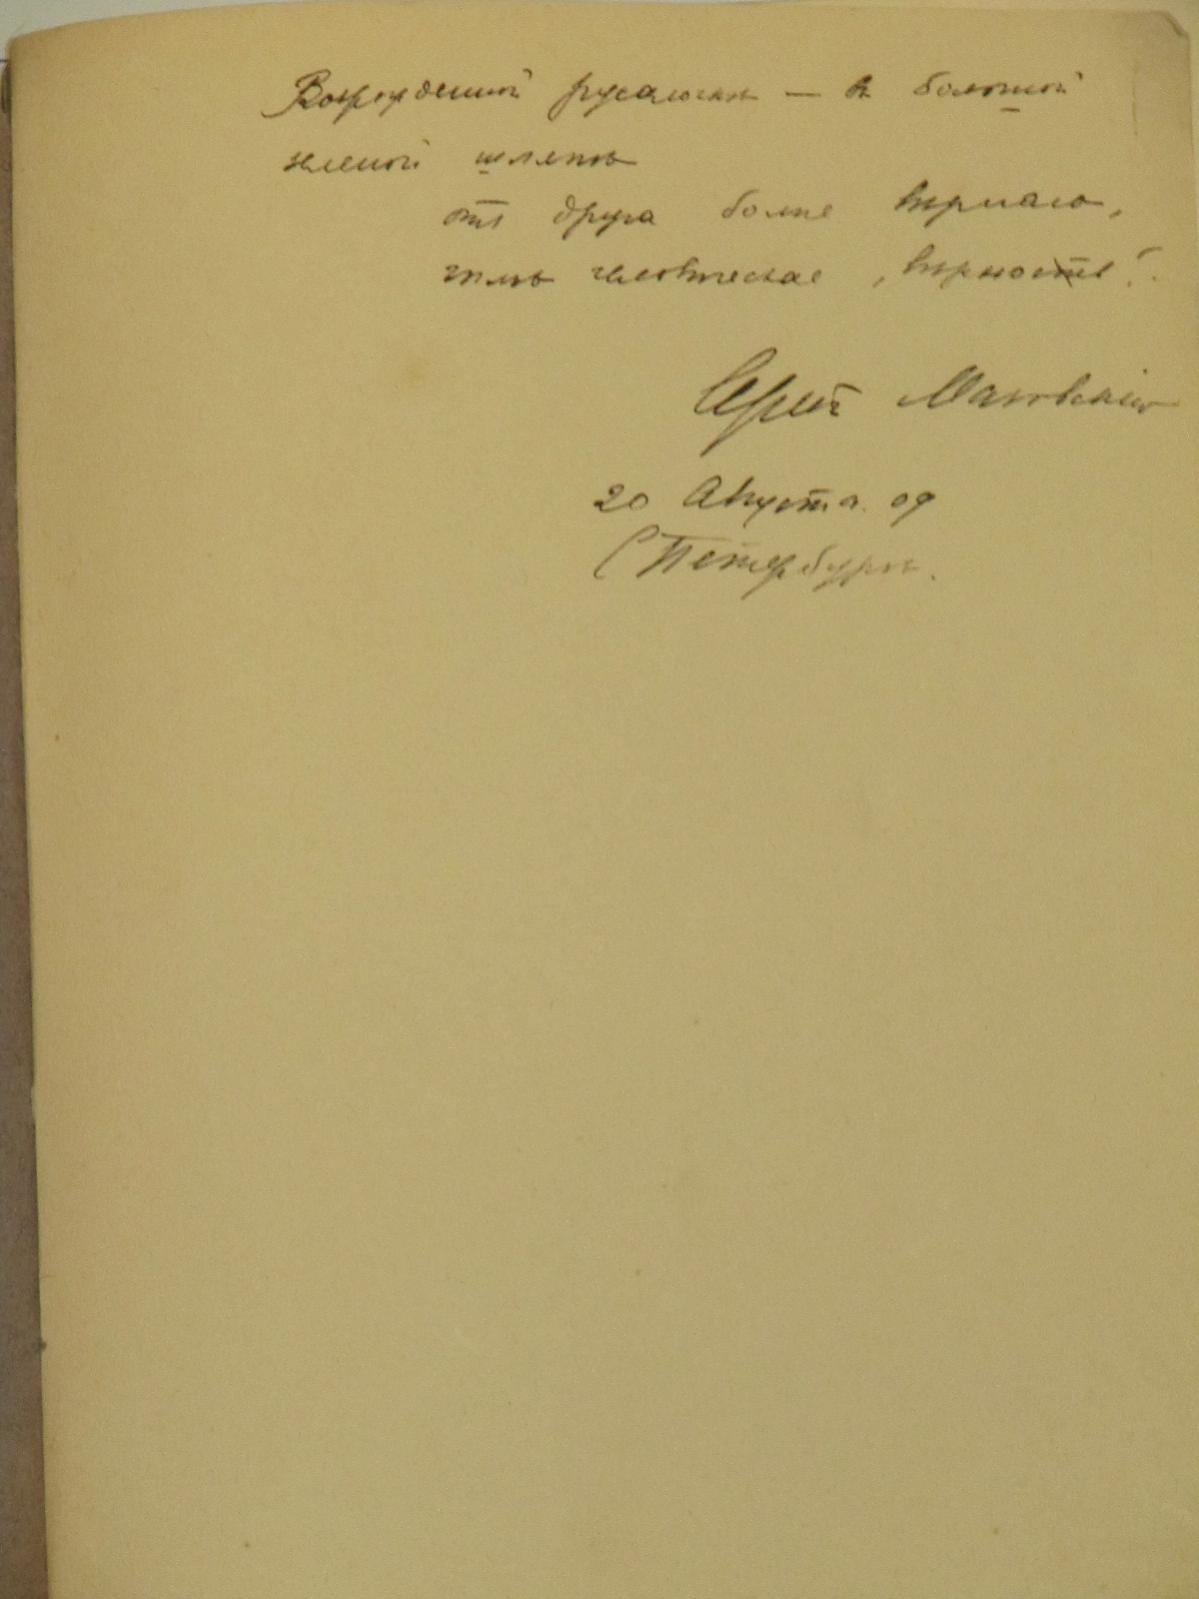 Возрожденной русалочке — в большой
зеленой шляпе
отъ друга более вернаго,
чемъ человеческая „верность“!
Сергей Маковскій
20 Августа. 09
С Петербургъ.